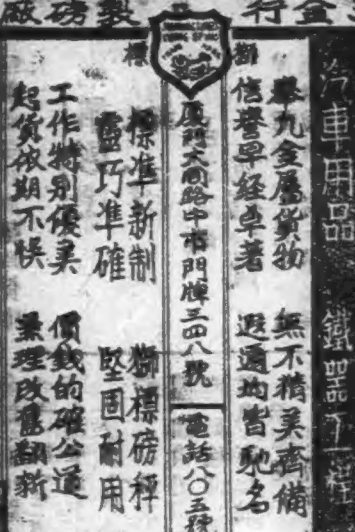 金行 製磅廠
獅標
汽車用品 鐵器工程
舉凡金屬貨物 無不精美齊備
信譽早經卓著 遐邇均皆馳名
廈門大同路中市門牌三四八號
電話八〇五號
標準新制 獅標磅秤
靈巧準確 堅固耐用
工作特別優美 價錢的確公道
起貨依期不悮 兼理改舊翻新